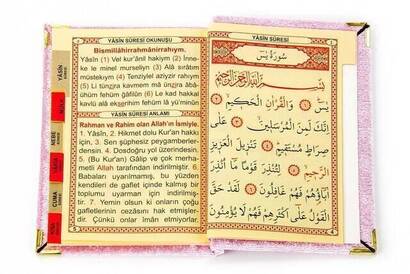 YÂSİN SÛRESİ OKUNUŞU
Bismillâhirrahmânirrahıym.
Yâsîn (1) Vel kur'ânil hakiym (2) İnne-
ke le minel murseliyn (3) Alâ sırâtım
müstekıym (4) Tenziylel aziyzir rahiym
(5) Li tünzira kavmem mâ ünzira âbâ-
ühüm fehüm ğâfilûn (6) Le kad hakkal
kavlü alâ ekserihim fehüm lâ yü'minûn
YÂSİN SÛRESİ ANLAMI
Rahman ve Rahim olan Allah'ın İsmiyle.
1. Yâsîn, 2. Hikmet dolu Kur'an hakkı
için, 3. Sen şüphesiz peygamberler-
densin. 4. Dosdoğru yol üzerindesin.
5. (Bu Kur'an) Gâlip ve çok merha-
metli Allah tarafından indirilmiştir. 6.
Babaları uyarılmamış, bu yüzden
kendileri de gaflet içinde kalmış bir
toplumu uyarman için indirilmiş-
tir. 7. Yemin olsun ki onların çoğu
gafletlerinin cezasını hak etmişler-
dir. Çünkü onlar îman etmiyorlar.
YÂSİN
NEBE
CUMA
YÂSİN SÛRESİ
سُورَةُ يٰسٓ
بِسْمِ اللّٰهِ الرَّحْمٰنِ الرَّحِيمِ
يٰسٓ ﴿١﴾ وَالْقُرْاٰنِ الْحَكِيمِ ﴿٢﴾
اِنَّكَ لَمِنَ الْمُرْسَلِينَ ﴿٣﴾ عَلٰى
صِرَاطٍ مُسْتَقِيمٍ ﴿٤﴾ تَنْزِيلَ الْعَزِيزِ
الرَّحِيمِ ﴿٥﴾ لِتُنْذِرَ قَوْمًا مَٓا اُنْذِرَ
اٰبَٓاؤُهُمْ فَهُمْ غَافِلُونَ ﴿٦﴾ لَقَدْ حَقَّ
الْقَوْلُ عَلٰٓى اَكْثَرِهِمْ فَهُمْ لَا يُؤْمِنُونَ